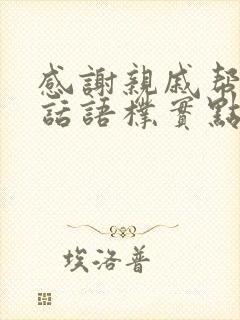 感謝親戚幫
話語樸實點
埃洛普